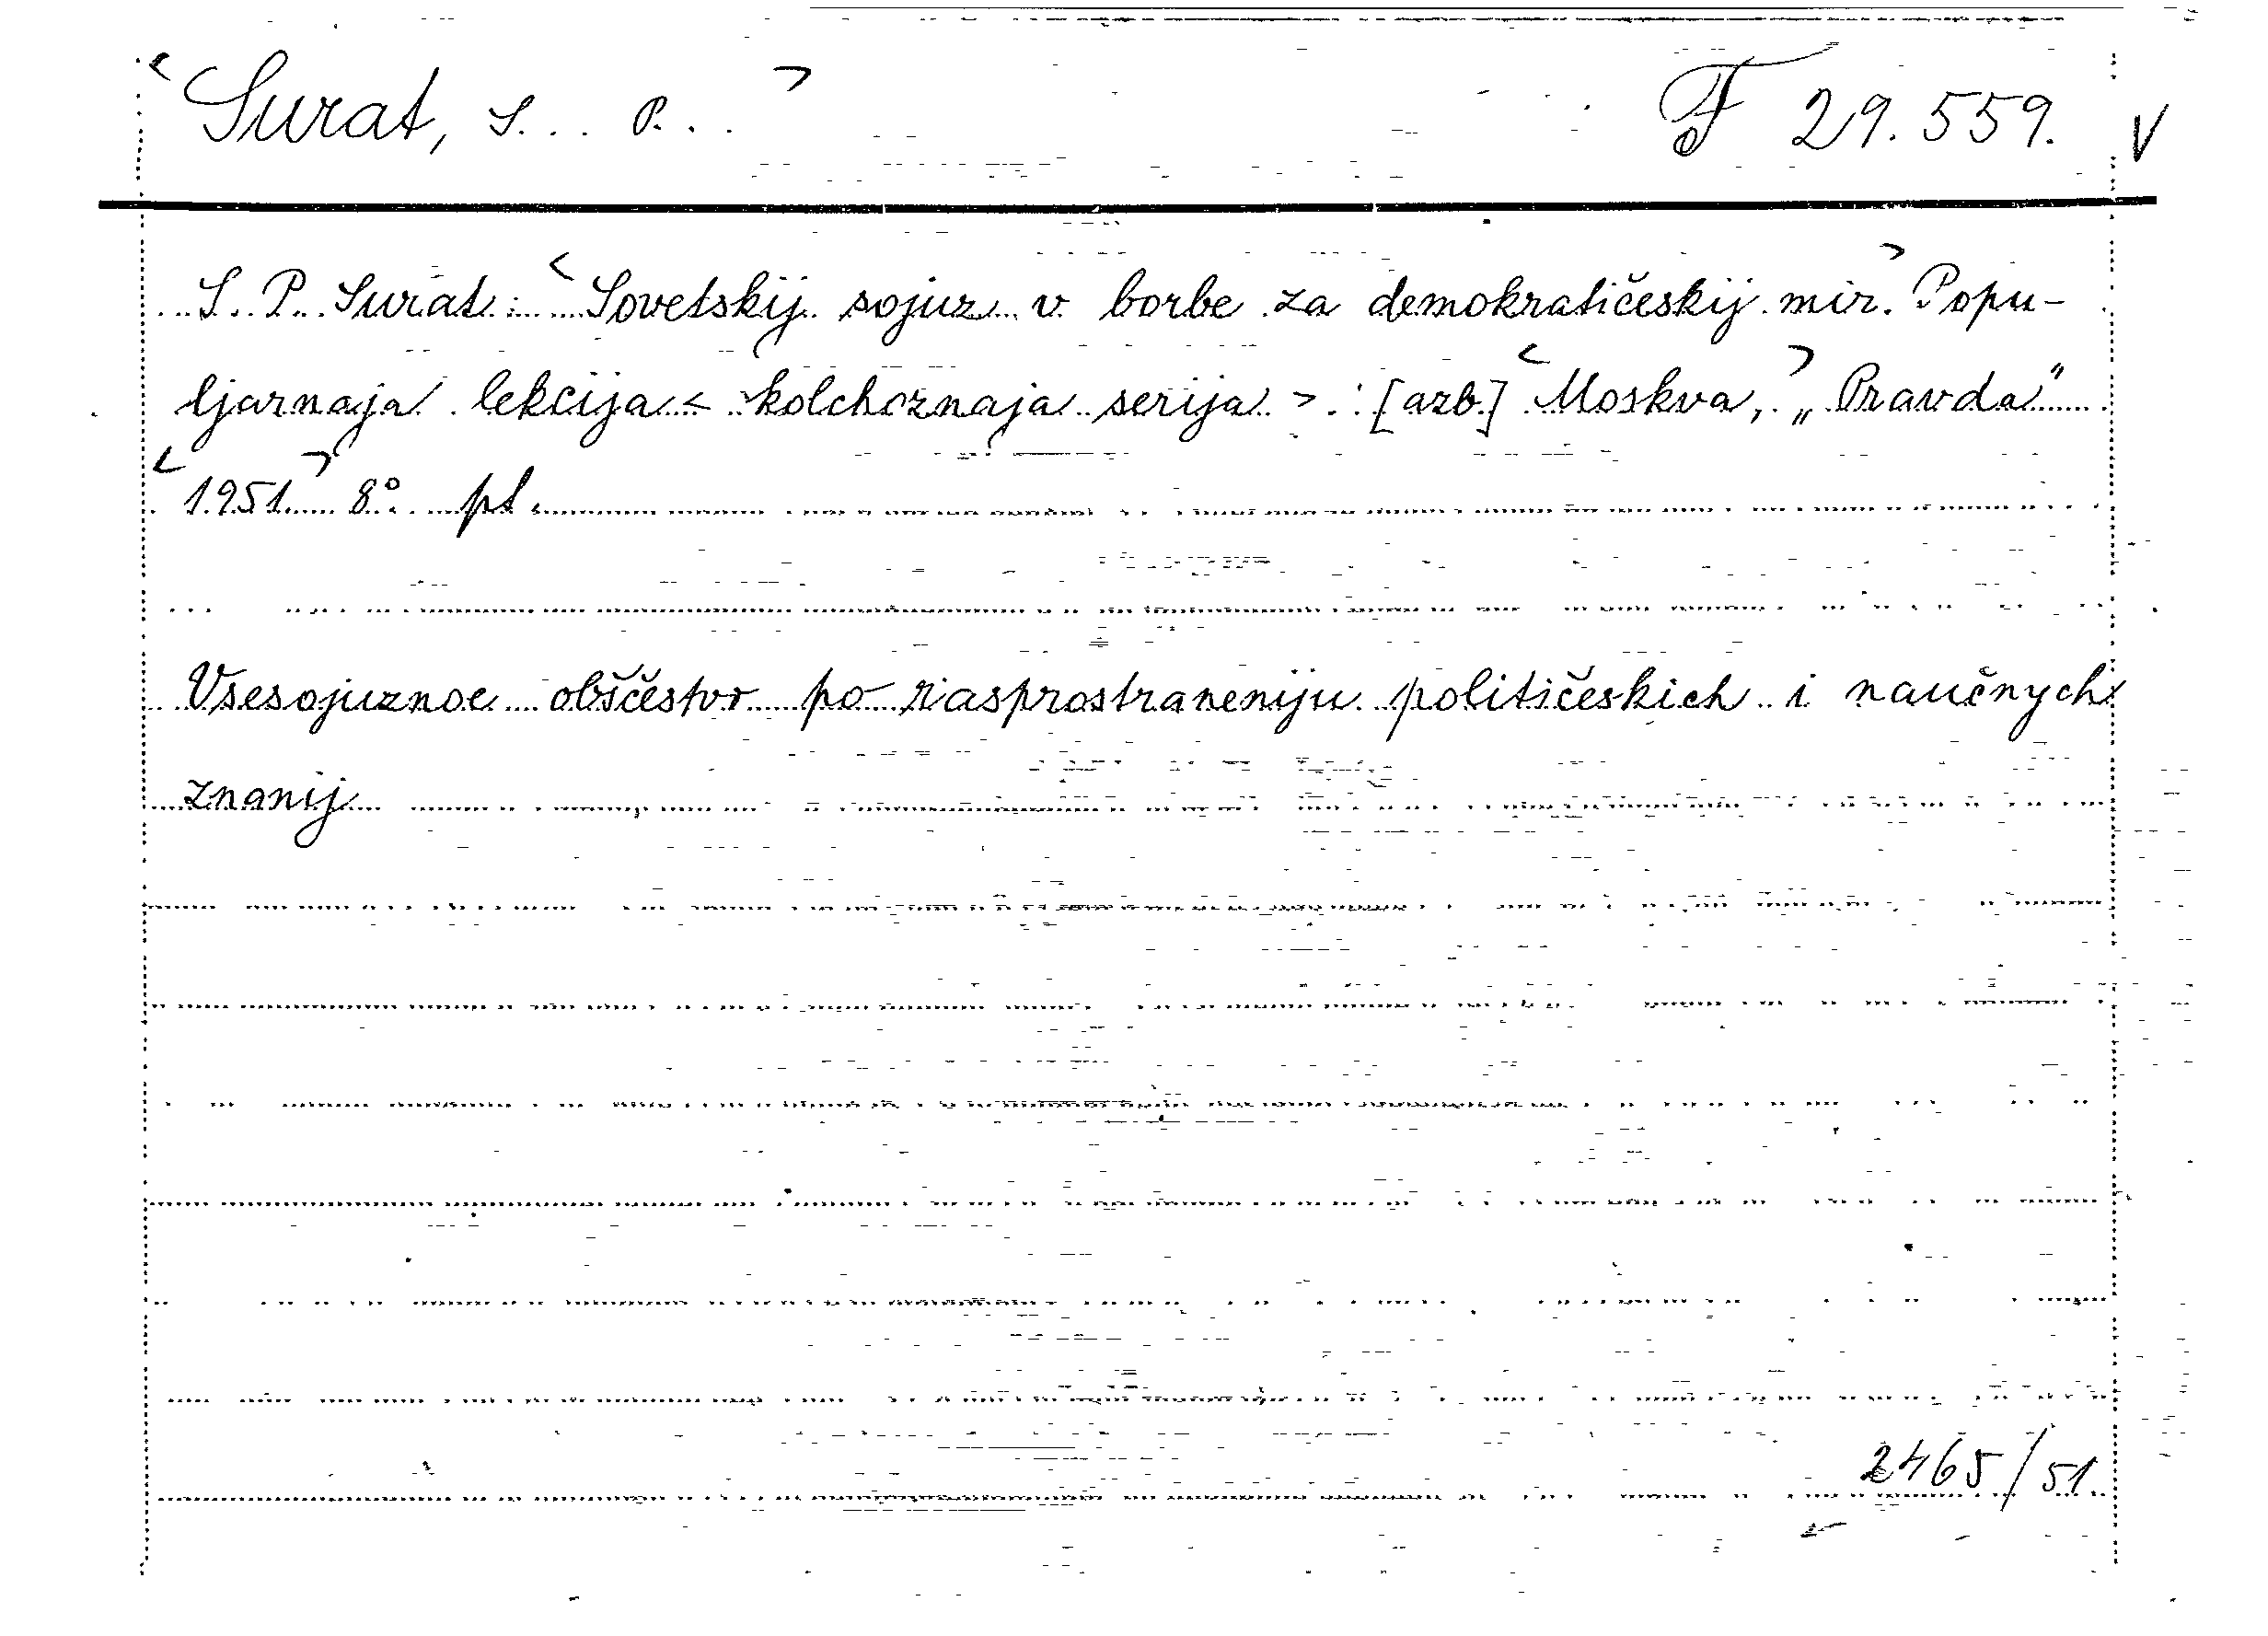 <Surat, S... P...> F 29.559. V
S. P. Surat: <Sovetskij sojuz v borbe za demokratičeskij mir.> Popu-
ljarnaja lekcija < kolchoznaja serija >. [azb.] <Moskva,> „Pravda"
<1951> 8° pl.
Vsesojuznoe obščestvo po rasprostraneniju političeskich i naučnych
znanij
2465/51.